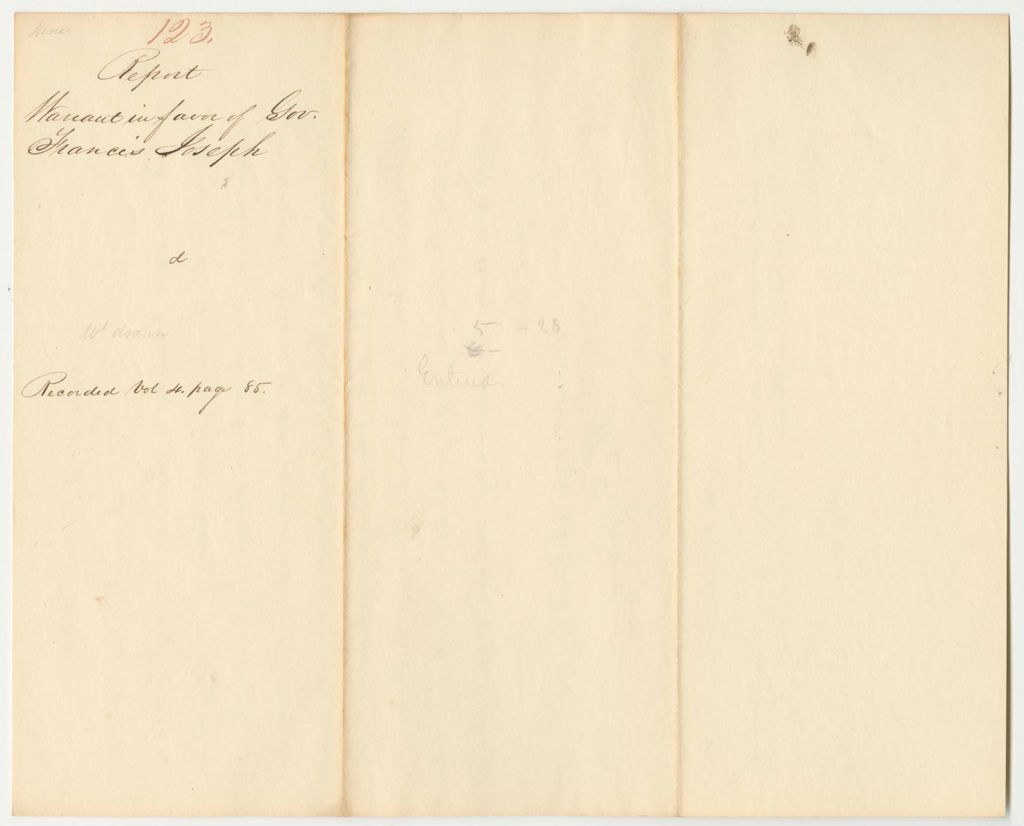 June
123.
Report
Warrant in favor of Gov.
Francis Joseph
d
Wt drawn
Recorded Vol 4. page 85.
5 - 28
Entered